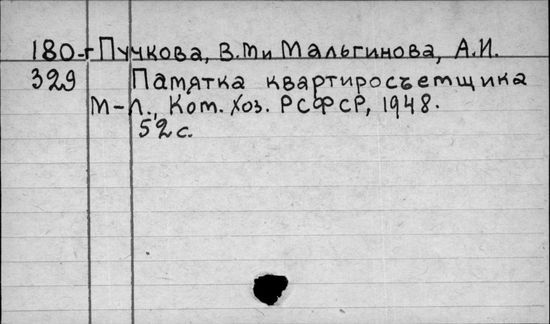 180-г Пучкова, В.М и Мальгинова, А.И.
329 Памятка квартиросъемщика
М-Л., Ком. Хоз. РСФСР, 1948.
52 с.